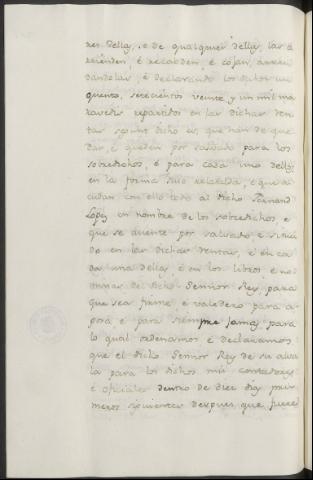 nes della, o de qualquier della, las a
rrienden, é recabden, é cojan, arren
dandolas, é declarando los dichos un
quento, setecientos veinte, y un mil ma
ravedis repartidos en las dichas ren
tas segunt dicho es, que han de que
dar, é queden por salvado para los
sobredichos, é para cada uno dellos
en la forma suso relatada, é que a
cudan con ello todo al dicho Fernand
Lopez en nombre de los sobredichos é
que se asiente por salvado é situa
do en las dichas rentas, é en ca
da una della, é en los libros é no
minas del dicho Sennior Rey, para
que sea firme é valedero para a
gora, é para siempre jamas, para
lo qual ordenamos é declaramos
que el dicho Sennior Rey dé su alva
la para los dichos mis contadores
é oficiales dentro de diez dias pri
meros siguientes despues que fuere